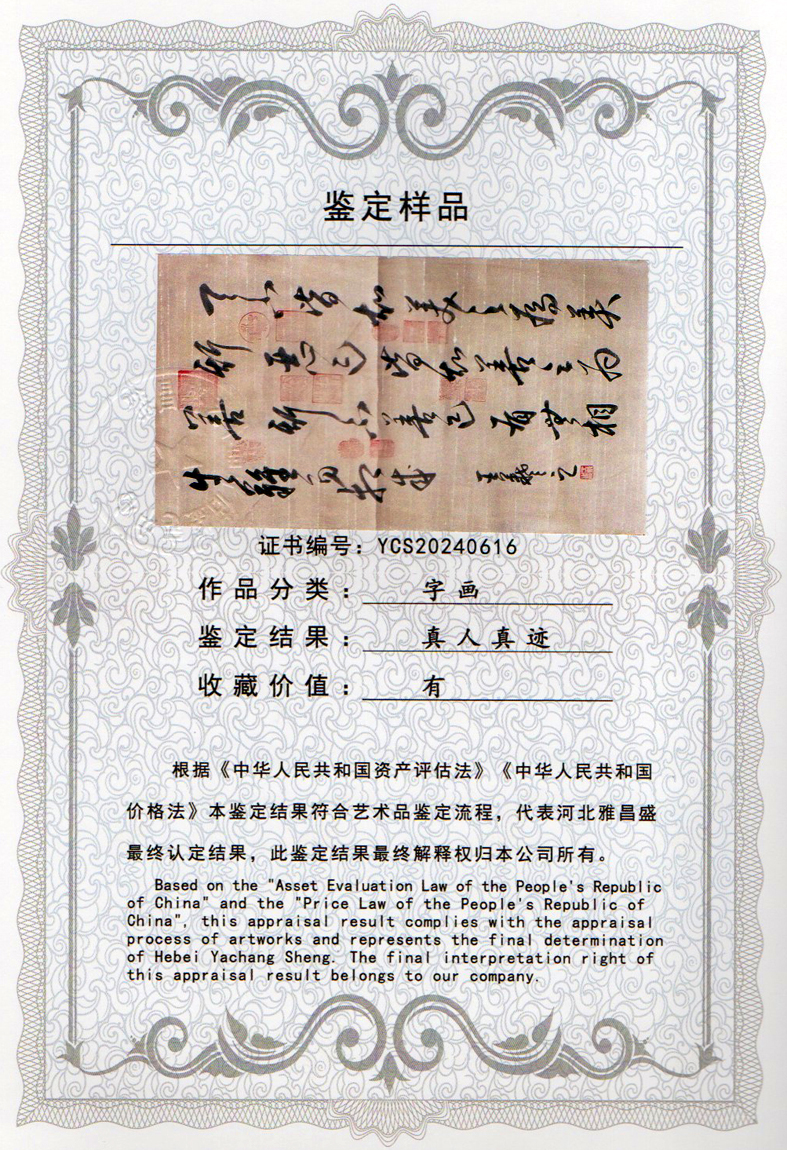 鉴定样品
天下皆知美之為美
斯惡已皆知善之為
善斯不善已有無相
生難易相成 王羲之
证书编号：YCS20240616
作品分类：字画
鉴定结果：真人真迹
收藏价值：有
根据《中华人民共和国资产评估法》《中华人民共和国
价格法》本鉴定结果符合艺术品鉴定流程，代表河北雅昌盛
最终认定结果，此鉴定结果最终解释权归本公司所有。
Based on the "Asset Evaluation Law of the People's Republic
of China" and the "Price Law of the People's Republic of
China", this appraisal result complies with the appraisal
process of artworks and represents the final determination
of Hebei Yachang Sheng. The final interpretation right of
this appraisal result belongs to our company.